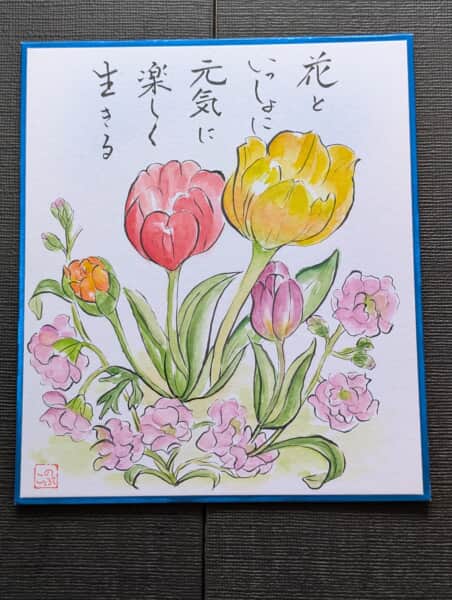 花と
いっしょに
元気に
楽しく
生きる